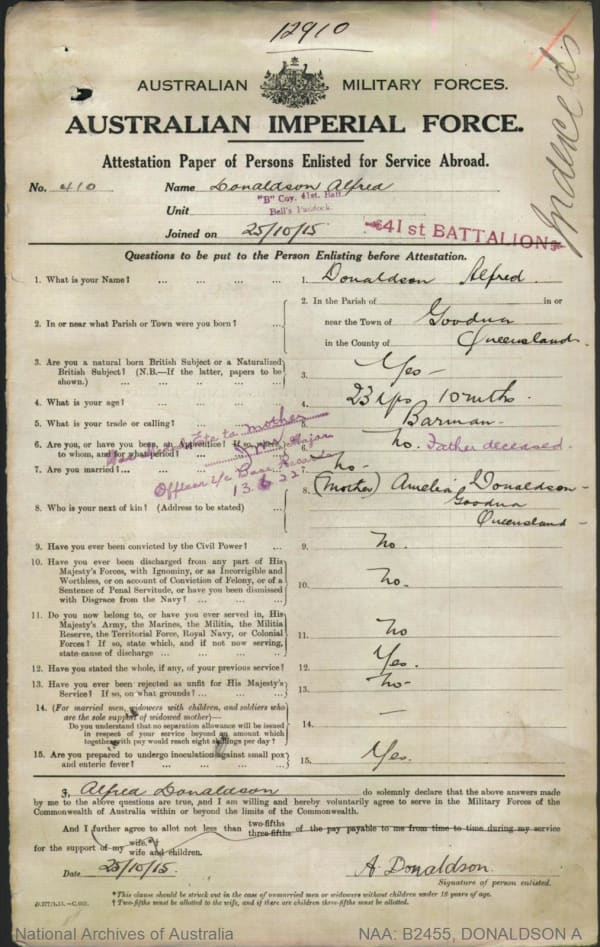 12910
Indexed
AUSTRALIAN MILITARY FORCES.
AUSTRALIAN IMPERIAL FORCE.
Attestation Paper of Persons Enlisted for Service Abroad.
No. 410 Name Donaldson Alfred
"B" Coy. 41st. Batt.
Unit Bell's Paddock.
Joined on 25/10/15
41st BATTALION
Questions to be put to the Person Enlisting before Attestation.
1. What is your Name? ... ... ... ... 1. Donaldson Alfred.
2. In or near what Parish or Town were you born? ... 2. In the Parish of in or
near the Town of Goodna
in the County of Queensland.
3. Are you a natural born British Subject or a Naturalized
British Subject? (N.B.—If the latter, papers to be
shown.) ... ... ... ... ... 3. Yes -
4. What is your age? ... ... ... ... 4. 23 yrs 10 mths.
5. What is your trade or calling? ... ... ... 5. Barman -
6. Are you, or have you been, an Apprentice? If so, where,
to whom, and for what period? ... ... 6. No. Father deceased.
to Mother
Major
Officer i/c Base Records
13.6.22
7. Are you married? ... ... ... ... 7. No -
8. Who is your next of kin? (Address to be stated) ... 8. (Mother) Amelia Donaldson -
Goodna
Queensland -
9. Have you ever been convicted by the Civil Power? ... 9. No.
10. Have you ever been discharged from any part of His
Majesty's Forces, with Ignominy, or as Incorrigible and
Worthless, or on account of Conviction of Felony, or of a
Sentence of Penal Servitude, or have you been dismissed
with Disgrace from the Navy? ... ... ... 10. No.
11. Do you now belong to, or have you ever served in, His
Majesty's Army, the Marines, the Militia, the Militia
Reserve, the Territorial Force, Royal Navy, or Colonial
Forces? If so, state which, and if not now serving,
state cause of discharge ... ... ... 11. No
12. Have you stated the whole, if any, of your previous service? 12. Yes.
13. Have you ever been rejected as unfit for His Majesty's
Service? If so, on what grounds? ... ... ... 13. No -
14. (For married men, widowers with children, and soldiers who
are the sole support of widowed mother)—
Do you understand that no separation allowance will be issued
in respect of your service beyond an amount which
together with pay would reach eight shillings per day? 14. —
15. Are you prepared to undergo inoculation against small pox
and enteric fever? ... ... ... ... 15. Yes.
I, Alfred Donaldson do solemnly declare that the above answers made
by me to the above questions are true, and I am willing and hereby voluntarily agree to serve in the Military Forces of the
Commonwealth of Australia within or beyond the limits of the Commonwealth.
And I further agree to allot not less than two-fifths
three-fifths of the pay payable to me from time to time during my service
for the support of my wife.*†
wife and children.
Date 25/10/15. A. Donaldson.
Signature of person enlisted.
*This clause should be struck out in the case of unmarried men or widowers without children under 18 years of age.
† Two-fifths must be allotted to the wife, and if there are children three-fifths must be allotted.
National Archives of Australia NAA: B2455, DONALDSON A